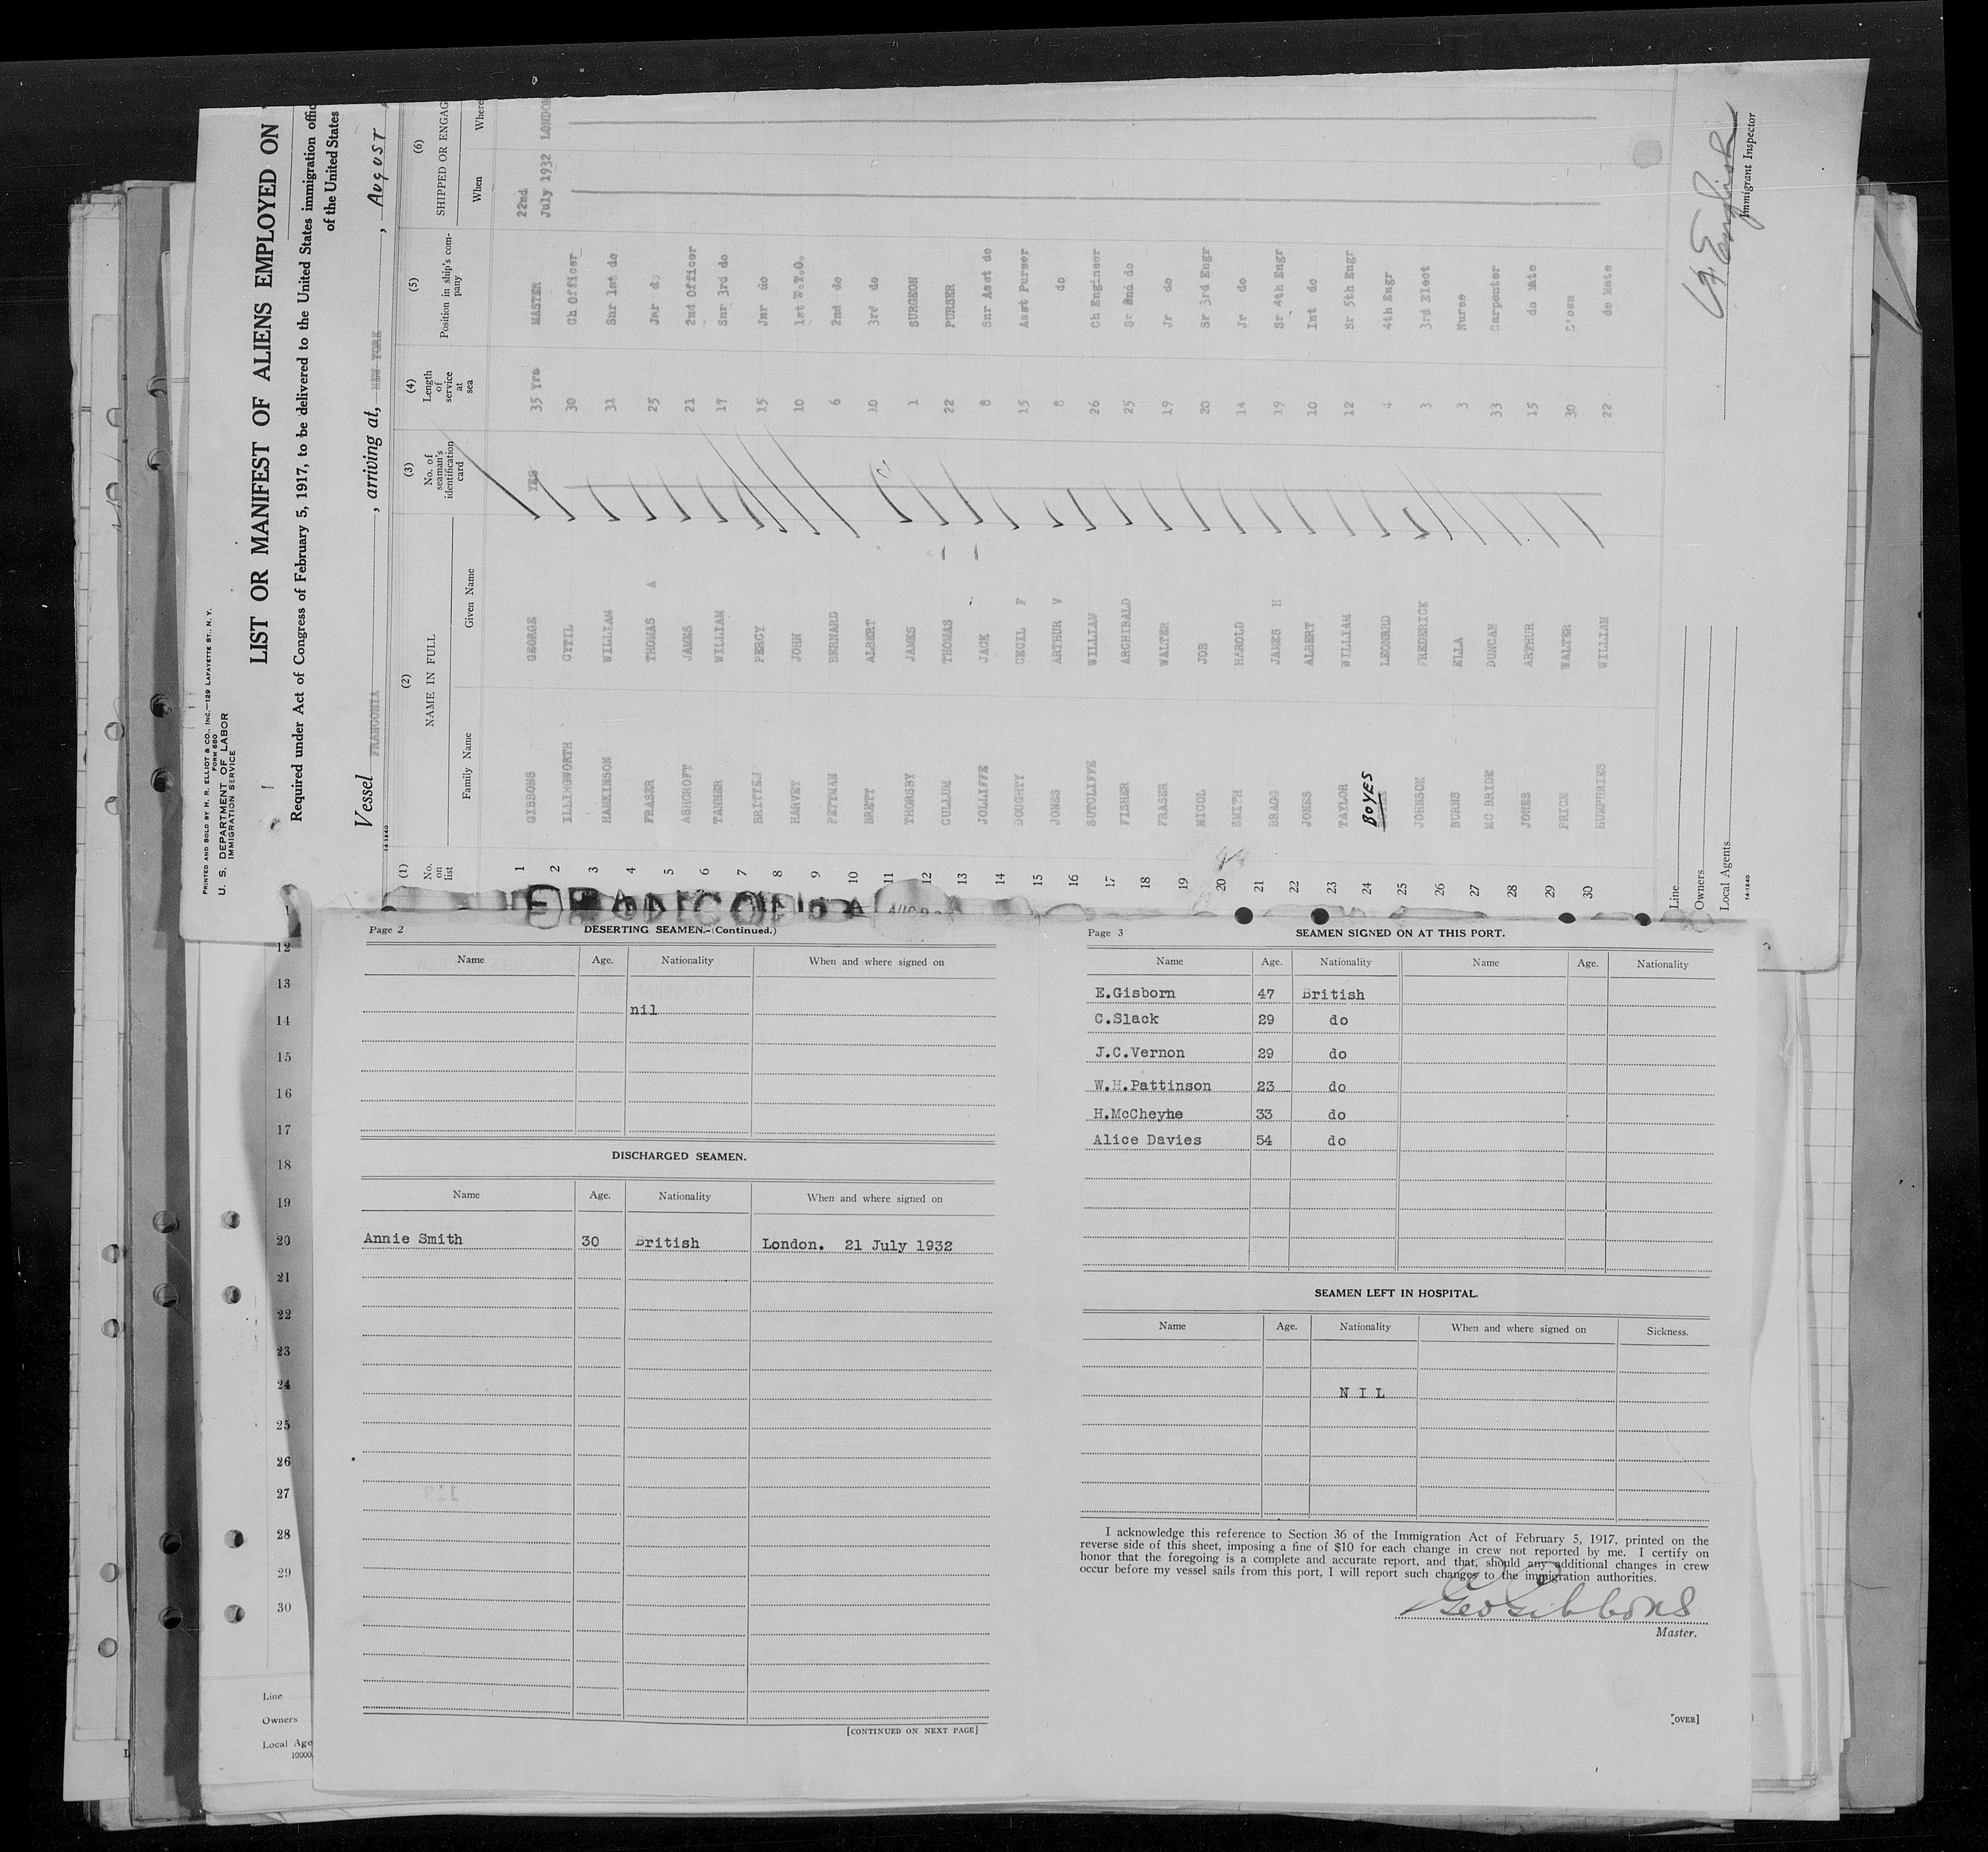 PRINTED AND SOLD BY H. R. ELLIOT & CO., INC.—129 LAFAYETTE ST., N. Y.
FORM 680
U. S. DEPARTMENT OF LABOR
IMMIGRATION SERVICE
LIST OR MANIFEST OF ALIENS EMPLOYED ON
Required under Act of Congress of February 5, 1917, to be delivered to the United States immigration offic
of the United States
Vessel FRANCONIA, arriving at, NEW YORK, AUGUST
14-1240
(1) (2) (3) (4) (5) (6)
No. on list NAME IN FULL No. of seaman's identification card Length of service at sea Position in ship's company SHIPPED OR ENGAG
Family Name Given Name When Where
1 GIBBONS GEORGE YES 35 Yrs MASTER 22nd July 1932 LONDON
2 ILLINGWORTH CYTIL 30 Ch Officer
3 HANKINSON WILLIAM 31 Snr 1st do
4 FRASER THOMAS A 25 Jnr do
5 ASHCROFT JAMES 21 2nd Officer
6 TANNER WILLIAM 17 Snr 3rd do
7 BRITTEN PERCY 15 Jnr do
8 HARVEY JOHN 10 1st W.T.O.
9 PETTMAN BERNARD 6 2nd do
10 BRETT ALBERT 10 3rd do
11 THORSBY JAMES 1 SURGEON
12 CULLUM THOMAS 22 PURSER
13 JOLLIFFE JACK 8 Snr Asst do
14 DOUGHTY CECIL F 15 Asst Purser
15 JONES ARTHUR V 8 do
16 SUTCLIFFE WILLIAM 26 Ch Engineer
17 FISHER ARCHIBALD 25 Sr 2nd do
18 FRASER WALTER 19 Jr do
19 NICOL JOB 20 Sr 3rd Engr
20 SMITH HAROLD 14 Jr do
21 BRAGG JAMES H 19 Sr 4th Engr
22 JONES ALBERT 10 Int do
23 TAYLOR WILLIAM 12 Sr 5th Engr
24 BOYES LEONARD 4 4th Engr
25 JOHNSON FREDERICK 3 3rd Elect
26 BURNS ELLA 3 Nurse
27 MC BRIDE DUNCAN 33 Carpenter
28 JONES ARTHUR 15 do Mate
29 PRICE WALTER 30
30 HUMPHRIES WILLIAM 22 do Mate
Line
Owners
Local Agents
14-1240
Immigrant Inspector
FRANCONIA
12
13
14
15
16
17
18
19
20
21
22
23
24
25
26
27
28
29
30
Line
Owners
Local Age
10000
Page 2 DESERTING SEAMEN.—(Continued.)
Name Age. Nationality When and where signed on
nil
DISCHARGED SEAMEN.
Name Age. Nationality When and where signed on
Annie Smith 30 British London. 21 July 1932
[CONTINUED ON NEXT PAGE]
Page 3 SEAMEN SIGNED ON AT THIS PORT.
Name Age. Nationality Name Age. Nationality
E.Gisborn 47 British
C.Slack 29 do
J.C.Vernon 29 do
W.H.Pattinson 23 do
H.McCheyhe 33 do
Alice Davies 54 do
SEAMEN LEFT IN HOSPITAL.
Name Age. Nationality When and where signed on Sickness.
N I L
I acknowledge this reference to Section 36 of the Immigration Act of February 5, 1917, printed on the
reverse side of this sheet, imposing a fine of $10 for each change in crew not reported by me. I certify on
honor that the foregoing is a complete and accurate report, and that, should any additional changes in crew
occur before my vessel sails from this port, I will report such changes to the immigration authorities.
Geo Gibbons
Master.
[OVER]